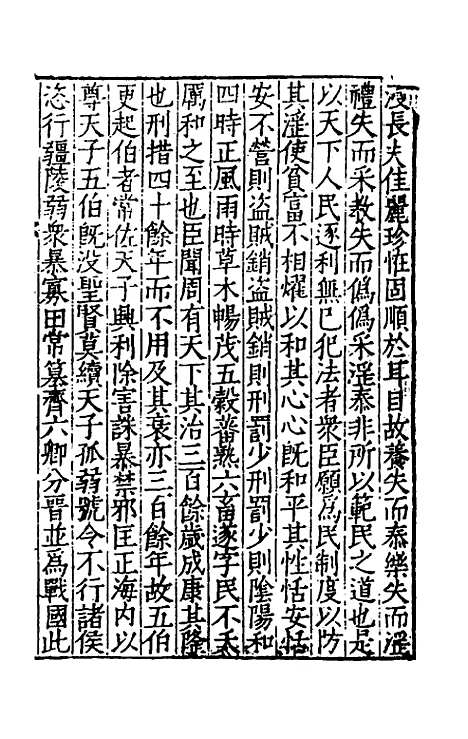 没長夫佳麗珍恠固順於耳目故養失而泰樂失而淫
禮失而采教失而僞僞采淫泰非所以範民之道也是
以天下人民逐利無已犯法者衆臣願爲民制度以防
其淫使貧富不相燿以和其心心旣和平其性恬安恬
安不營則盗賊銷盗賊銷則刑罰少刑罰少則陰陽和
四時正風雨時草木暢茂五穀蕃熟六畜遂字民不夭
厲和之至也臣聞周有天下其治三百餘歲成康其隆
也刑措四十餘年而不用及其衰亦三百餘年故五伯
更起伯者常佐天子興利除害誅暴禁邪匡正海内以
尊天子五伯旣没聖賢莫續天子孤弱號令不行諸侯
恣行彊陵弱衆暴寡田常篡齊六卿分晉並爲戰國此